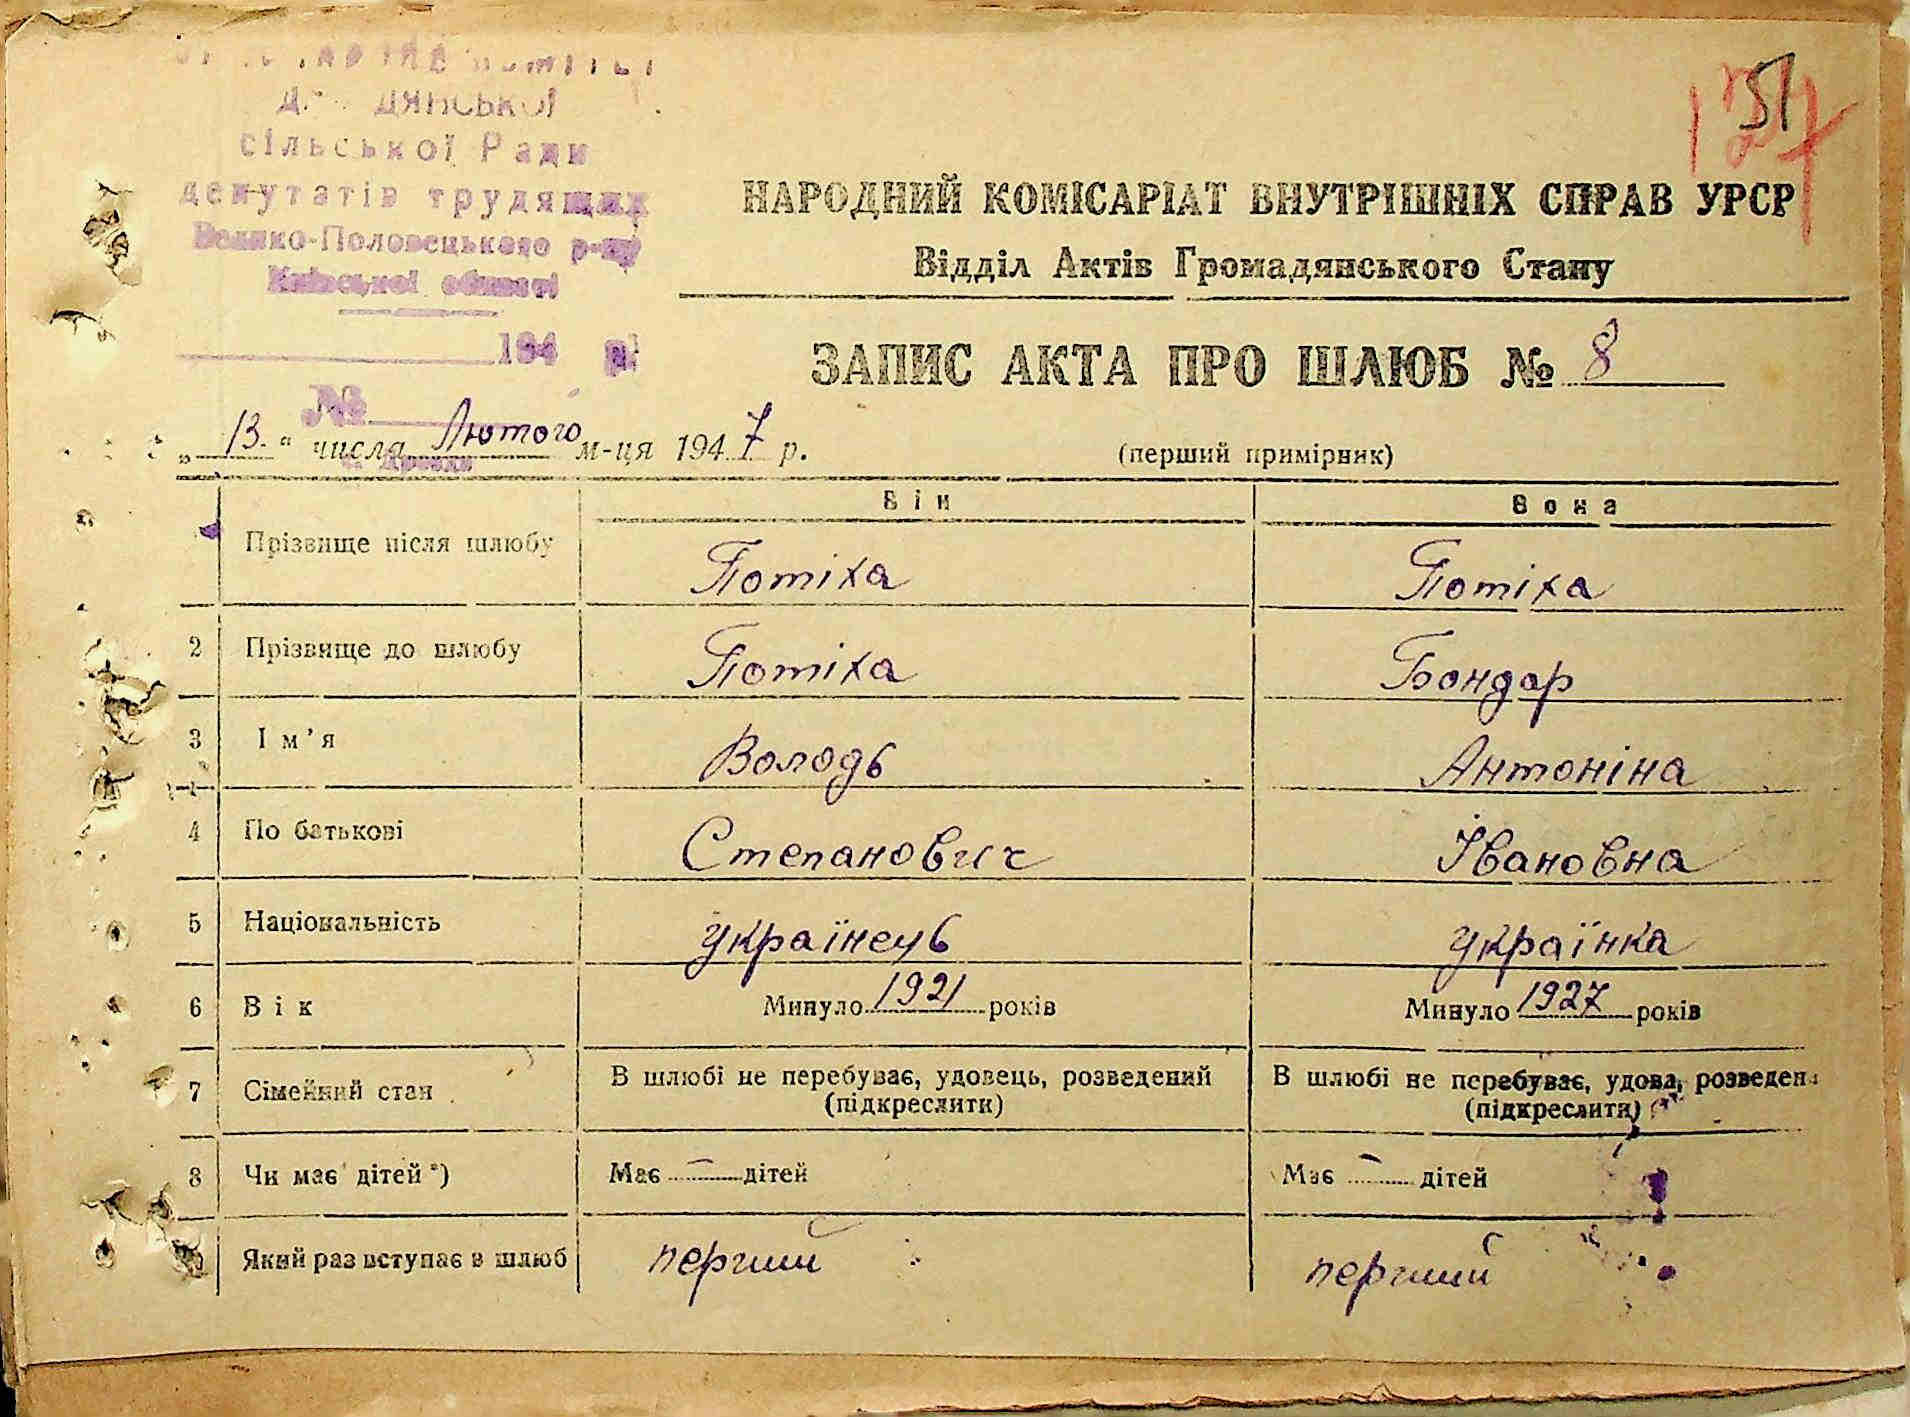 сільської Ради
депутатів трудящих
Велико-Половецького р-ну
Київської області
194 р.
№
51
НАРОДНИЙ КОМІСАРІАТ ВНУТРІШНІХ СПРАВ УРСР
Відділ Актів Громадянського Стану
ЗАПИС АКТА ПРО ШЛЮБ № 8
„ 13. " числа Лютого м-ця 1947 р. (перший примірник)
Він Вона
Прізвище після шлюбу Потіха Потіха
2 Прізвище до шлюбу Потіха Бондар
3 Ім'я Володь Антоніна
4 По батькові Степанович Івановна
5 Національність українець українка
6 Вік Минуло 1921 років Минуло 1927 років
7 Сімейний стан В шлюбі не перебуває, удовець, розведений (підкреслити) В шлюбі не перебуває, удова, розведена (підкреслити)
8 Чи має дітей *) Має — дітей Має — дітей
Який раз вступає в шлюб перший перший